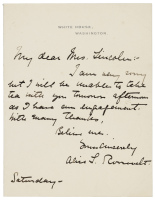 WHITE HOUSE,
WASHINGTON.
My dear Mrs. Lincoln:-
I am very sorry
but I will be unable to take
tea with you tomorrow afternoon
as I have an engagement.
With many thanks,
Believe me.
Yours sincerely
Alice L. Roosevelt
Saturday-